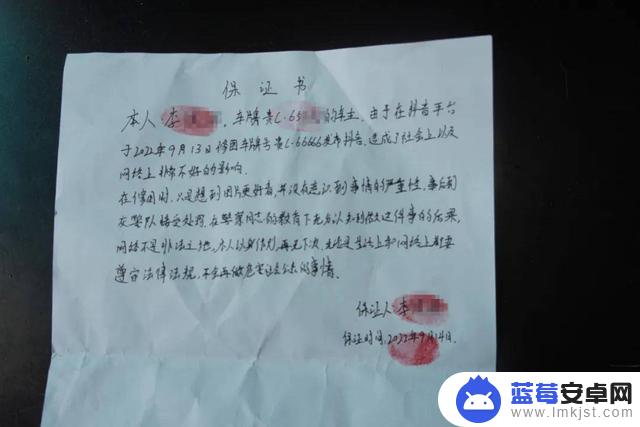 保证书
本人李 ，车牌贵C·65 的车主。由于在抖音平台
于2022年9月13日修图车牌号贵C·66666发布抖音，造成了社会上以及
网络上非常不好的影响
在修图时，只是想到图片更好看，并没有意识到事情的严重性，事后到
交警队接受处理，在警察同志的教育下 认识到做这件事的后果，
网络不是非法之地，本人以身作则，再无下次，无论是在路上和网络上都要
遵守法律法规，不会再做危害社会公共的事情。
保证人李
保证时间，2022年9月14日.
蓝莓安卓网
www.lmkjst.com